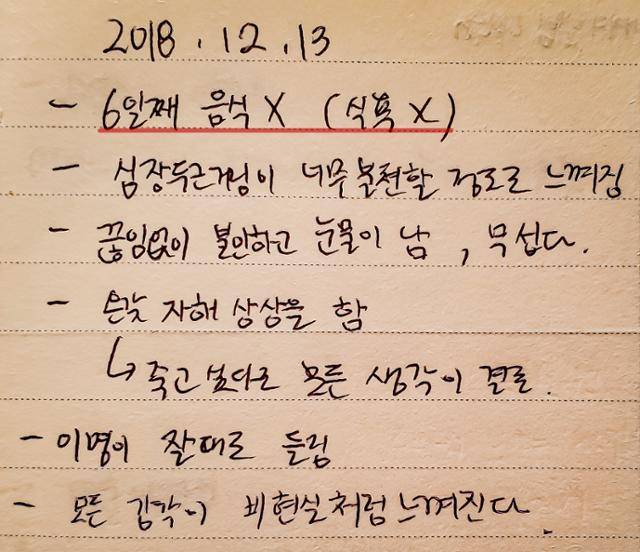 2018.12.13
- 6일째 음식 X (식욕 X)
- 심장두근거림이 너무불편할 정도로 느껴짐
- 끊임없이 불안하고 눈물이 남, 무섭다.
- 온갖 자해 상상을 함
↳ 죽고 싶다로 모든 생각이 결론.
- 이명이 잘대로 들림
- 모든 감각이 비현실처럼 느껴진다.